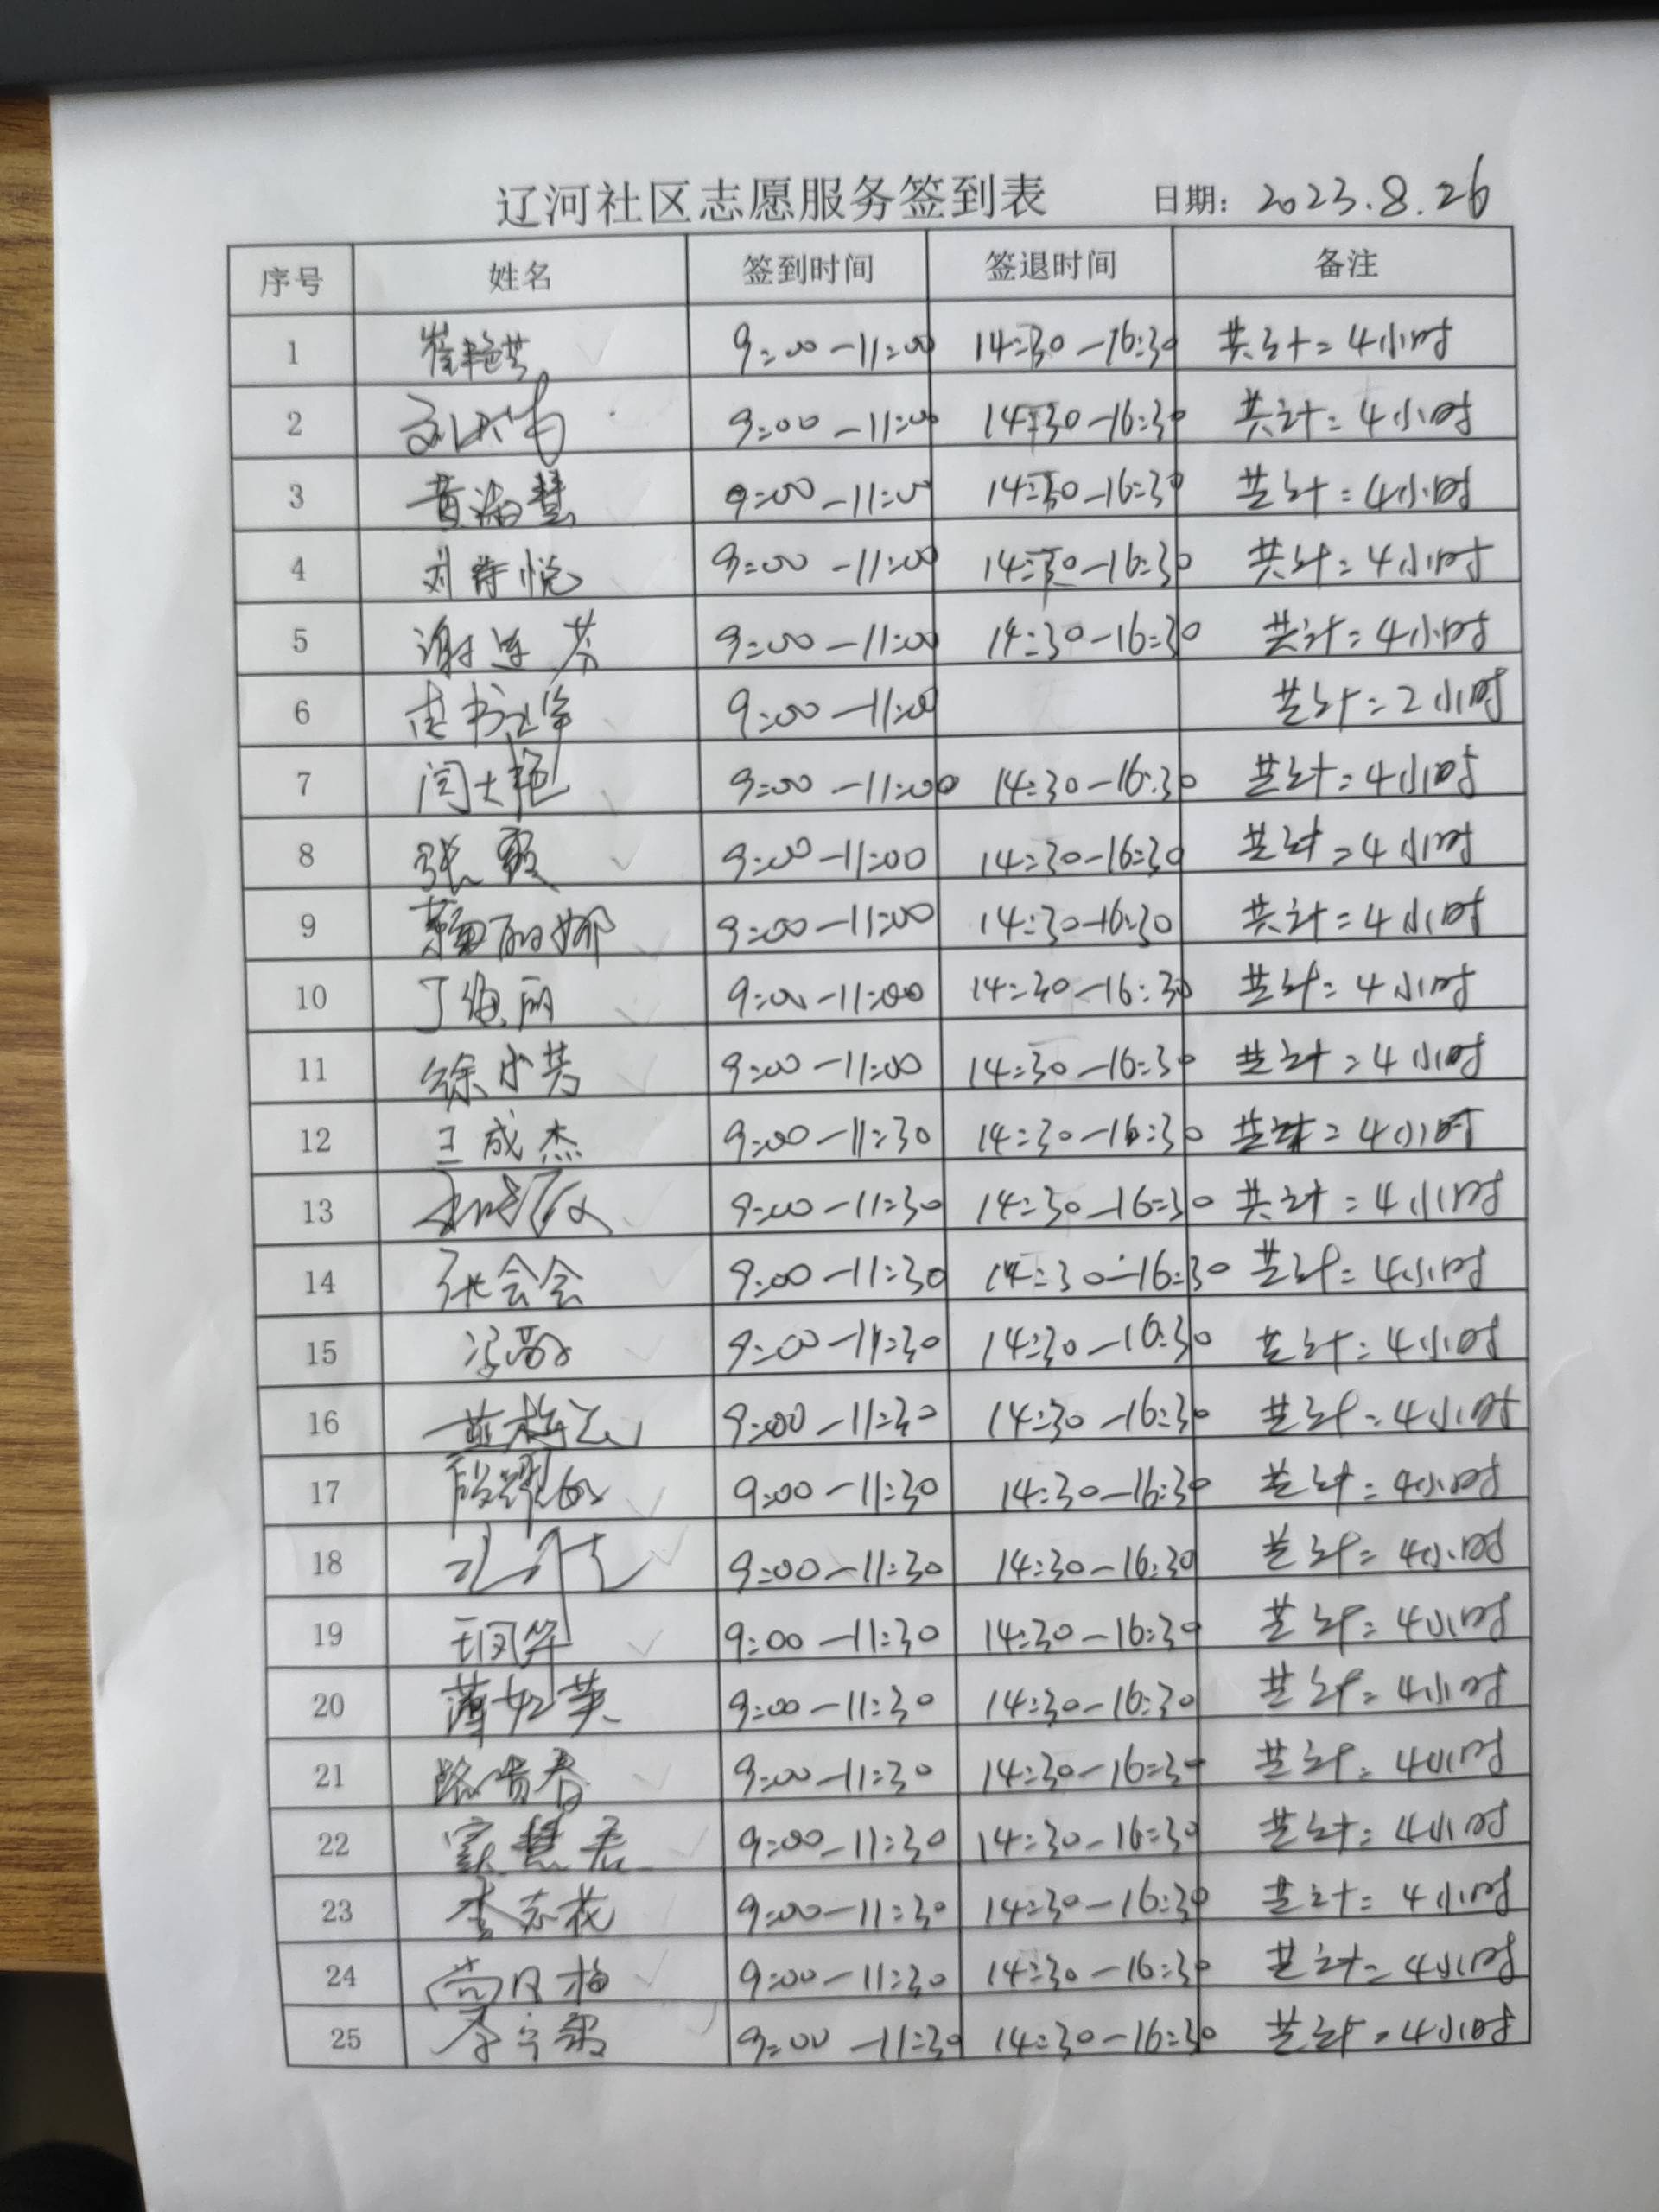 辽河社区志愿服务签到表 日期: 2023.8.26
序号 姓名 签到时间 签退时间 备注
1 崔艳芳 9:00-11:00 14:30-16:30 共计=4小时
2 9:00-11:00 14:30-16:30 共计=4小时
3 黄海慧 9:00-11:00 14:30-16:30 共计=4小时
4 刘诗悦 9:00-11:00 14:30-16:30 共计=4小时
5 谢连芬 9:00-11:00 14:30-16:30 共计=4小时
6 9:00-11:00 共计=2小时
7 闫士艳 9:00-11:00 14:30-16:30 共计=4小时
8 张霞 9:00-11:00 14:30-16:30 共计=4小时
9 丽娜 9:00-11:00 14:30-16:30 共计=4小时
10 丁 丽 9:00-11:00 14:30-16:30 共计=4小时
11 徐小芳 9:00-11:00 14:30-16:30 共计=4小时
12 王成杰 9:00-11:30 14:30-16:30 共计=4小时
13 9:00-11:30 14:30-16:30 共计=4小时
14 张会会 9:00-11:30 14:30-16:30 共计=4小时
15 9:00-11:30 14:30-16:30 共计=4小时
16 9:00-11:30 14:30-16:30 共计=4小时
17 9:00-11:30 14:30-16:30 共计=4小时
18 9:00-11:30 14:30-16:30 共计=4小时
19 王凤华 9:00-11:30 14:30-16:30 共计=4小时
20 薄如英 9:00-11:30 14:30-16:30 共计=4小时
21 路贵春 9:00-11:30 14:30-16:30 共计=4小时
22 9:00-11:30 14:30-16:30 共计=4小时
23 李志花 9:00-11:30 14:30-16:30 共计=4小时
24 9:00-11:30 14:30-16:30 共计=4小时
25 9:00-11:30 14:30-16:30 共计=4小时